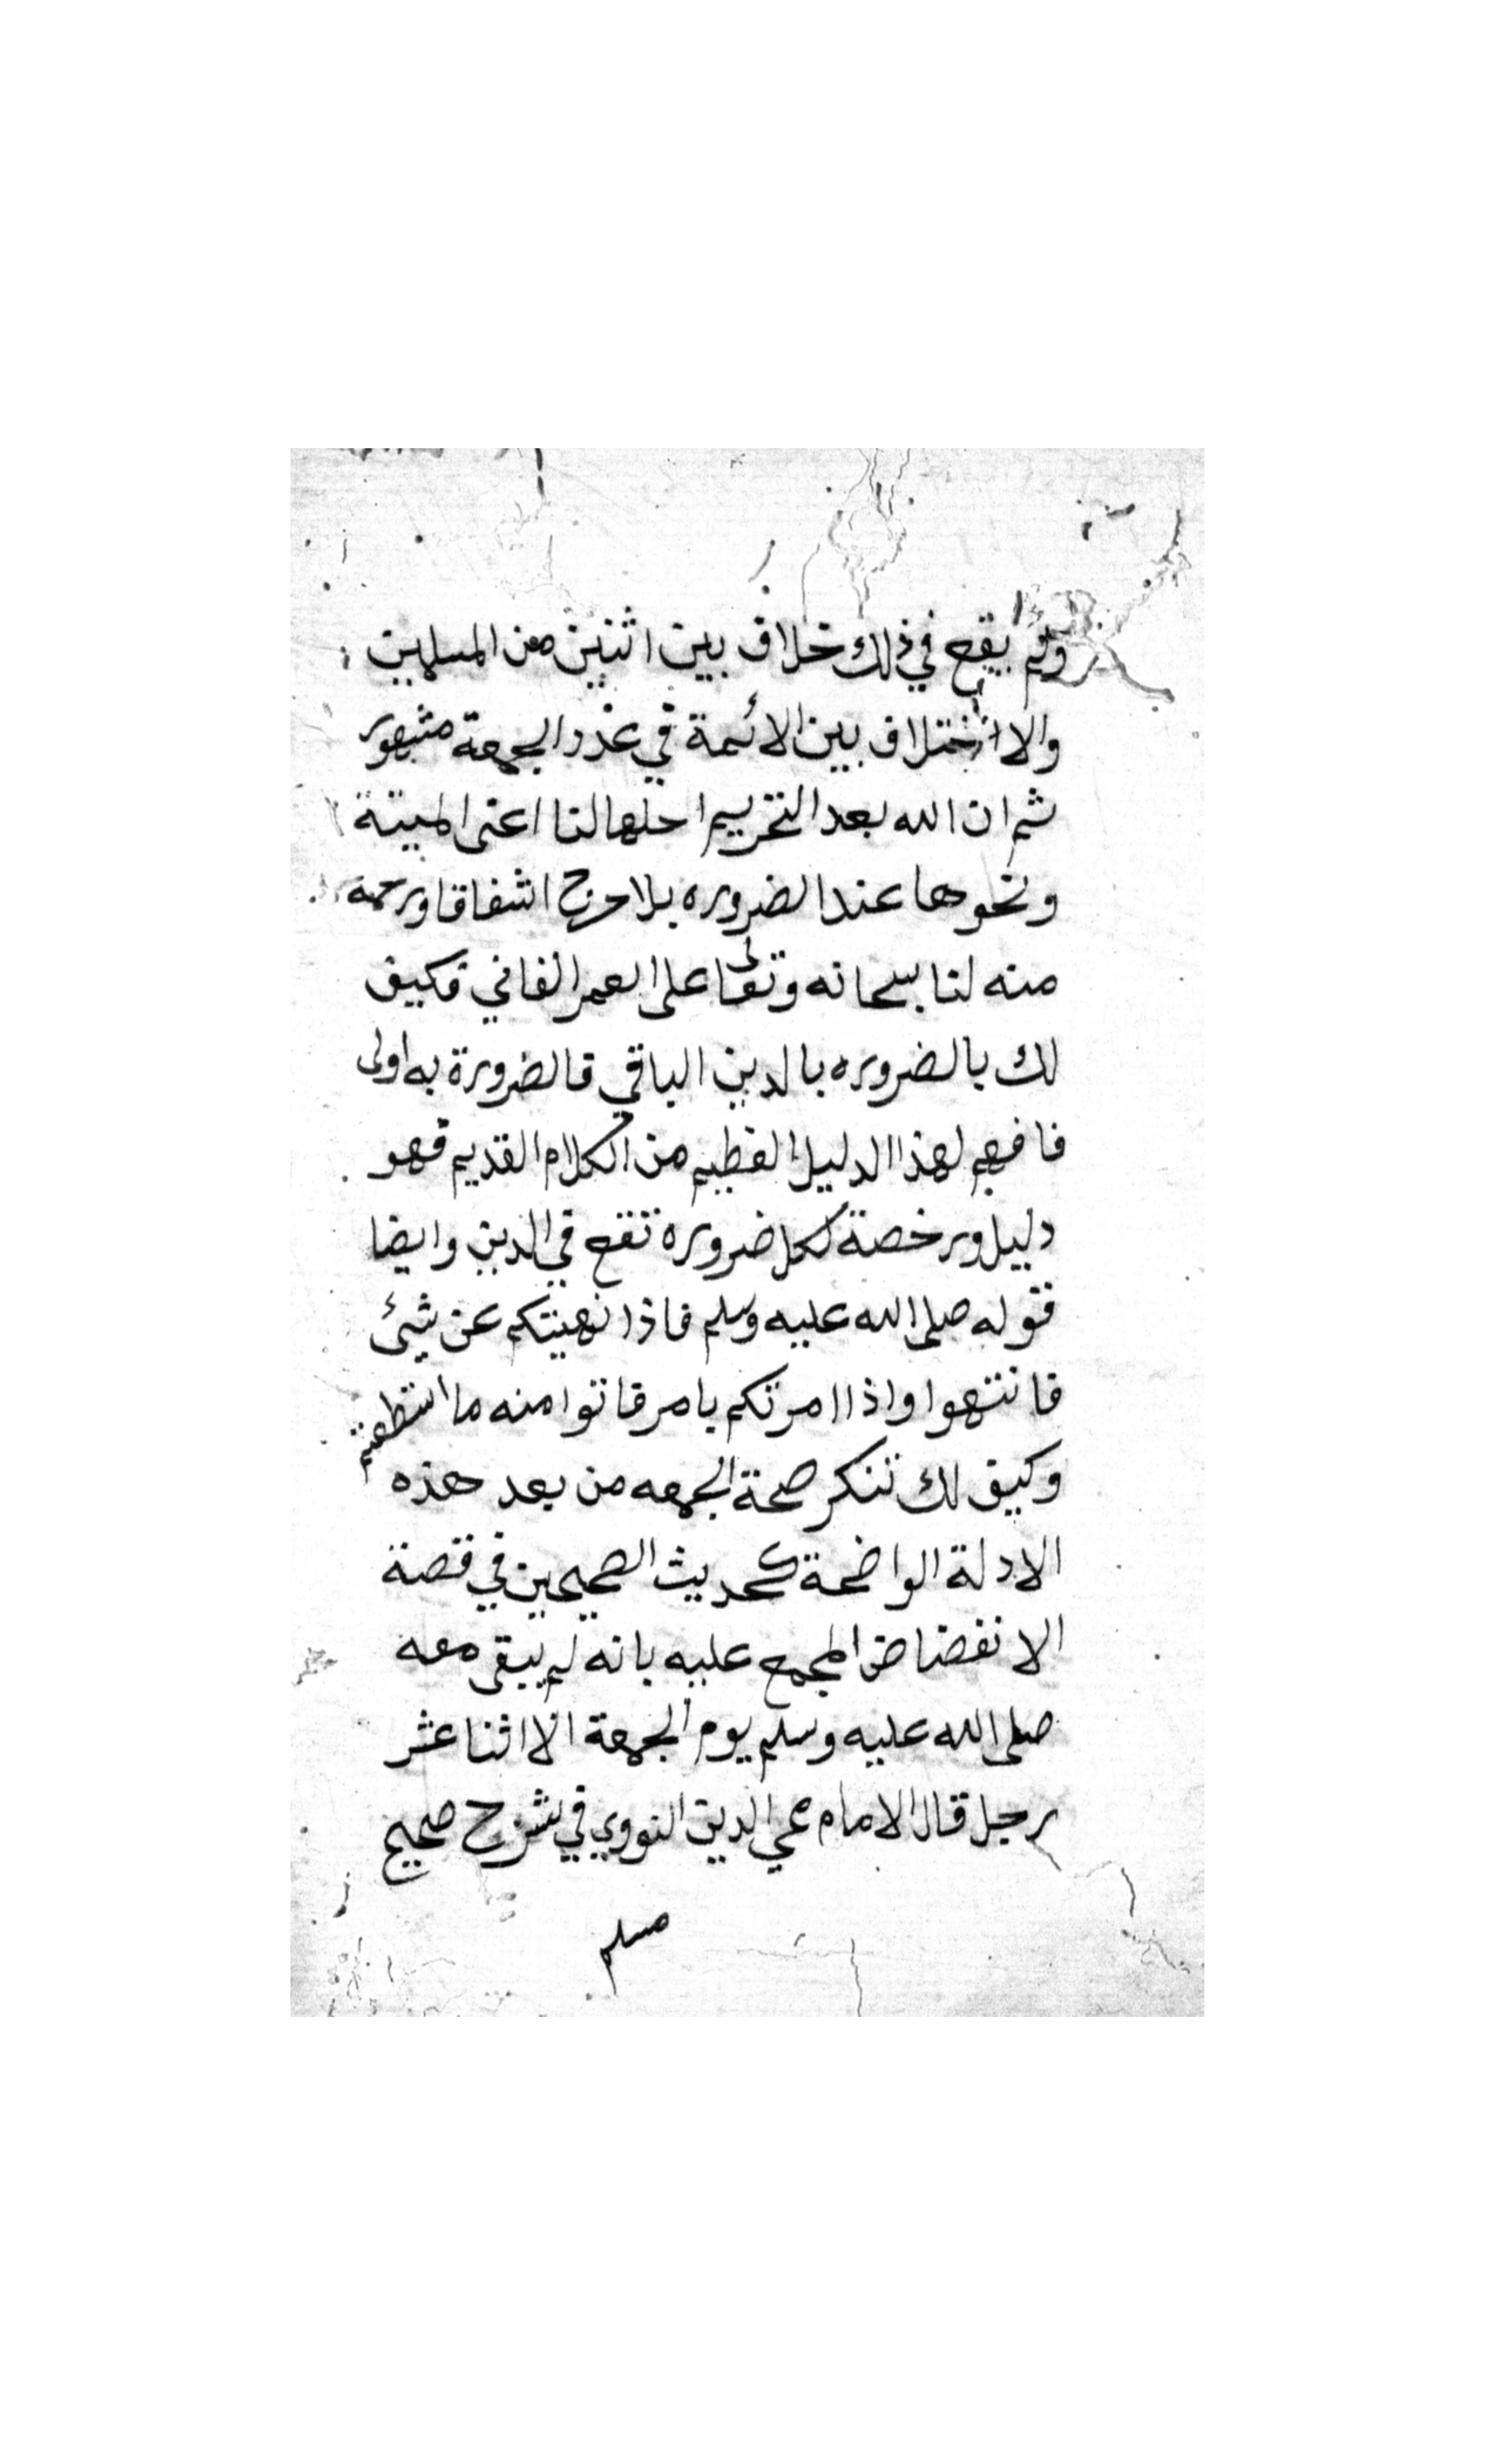 ولم يقع في ذلك خلاف بين اثنين من المسلمين
والاختلاف بين الائمة في عدد الجمعة مشهور
ثم ان الله بعد التحريم احلها لنا اعنى الميتة
ونحوها عند الضروره بلا حرج اشفاقا ورحمة
منه لنا سبحانه وتعالى على العمر الفاني فكيف
لك بالضروره بالدين الباقي فالضرورة به اولى
فافهم لهذا الدليل العظيم من الكلام القديم فهو
دليل ورخصة لكل ضرورة تقع في الدين وايضا
فقوله صلى الله عليه وسلم فاذا نهيتكم عن شيئ
فانتهوا واذا امرتكم بامر فاتوا منه ما استطعتم
وكيف لك تنكر صحة الجمعه من بعد هذه
الادلة الواضحة كحديث الصحيحين في قصة
الانفضاض المجمع عليه بانه لم يبقى معه
صلى الله عليه وسلم يوم الجمعة الا اثنا عشر
رجل قال الامام محي الدين النووي في شرح صحيح
مسلم